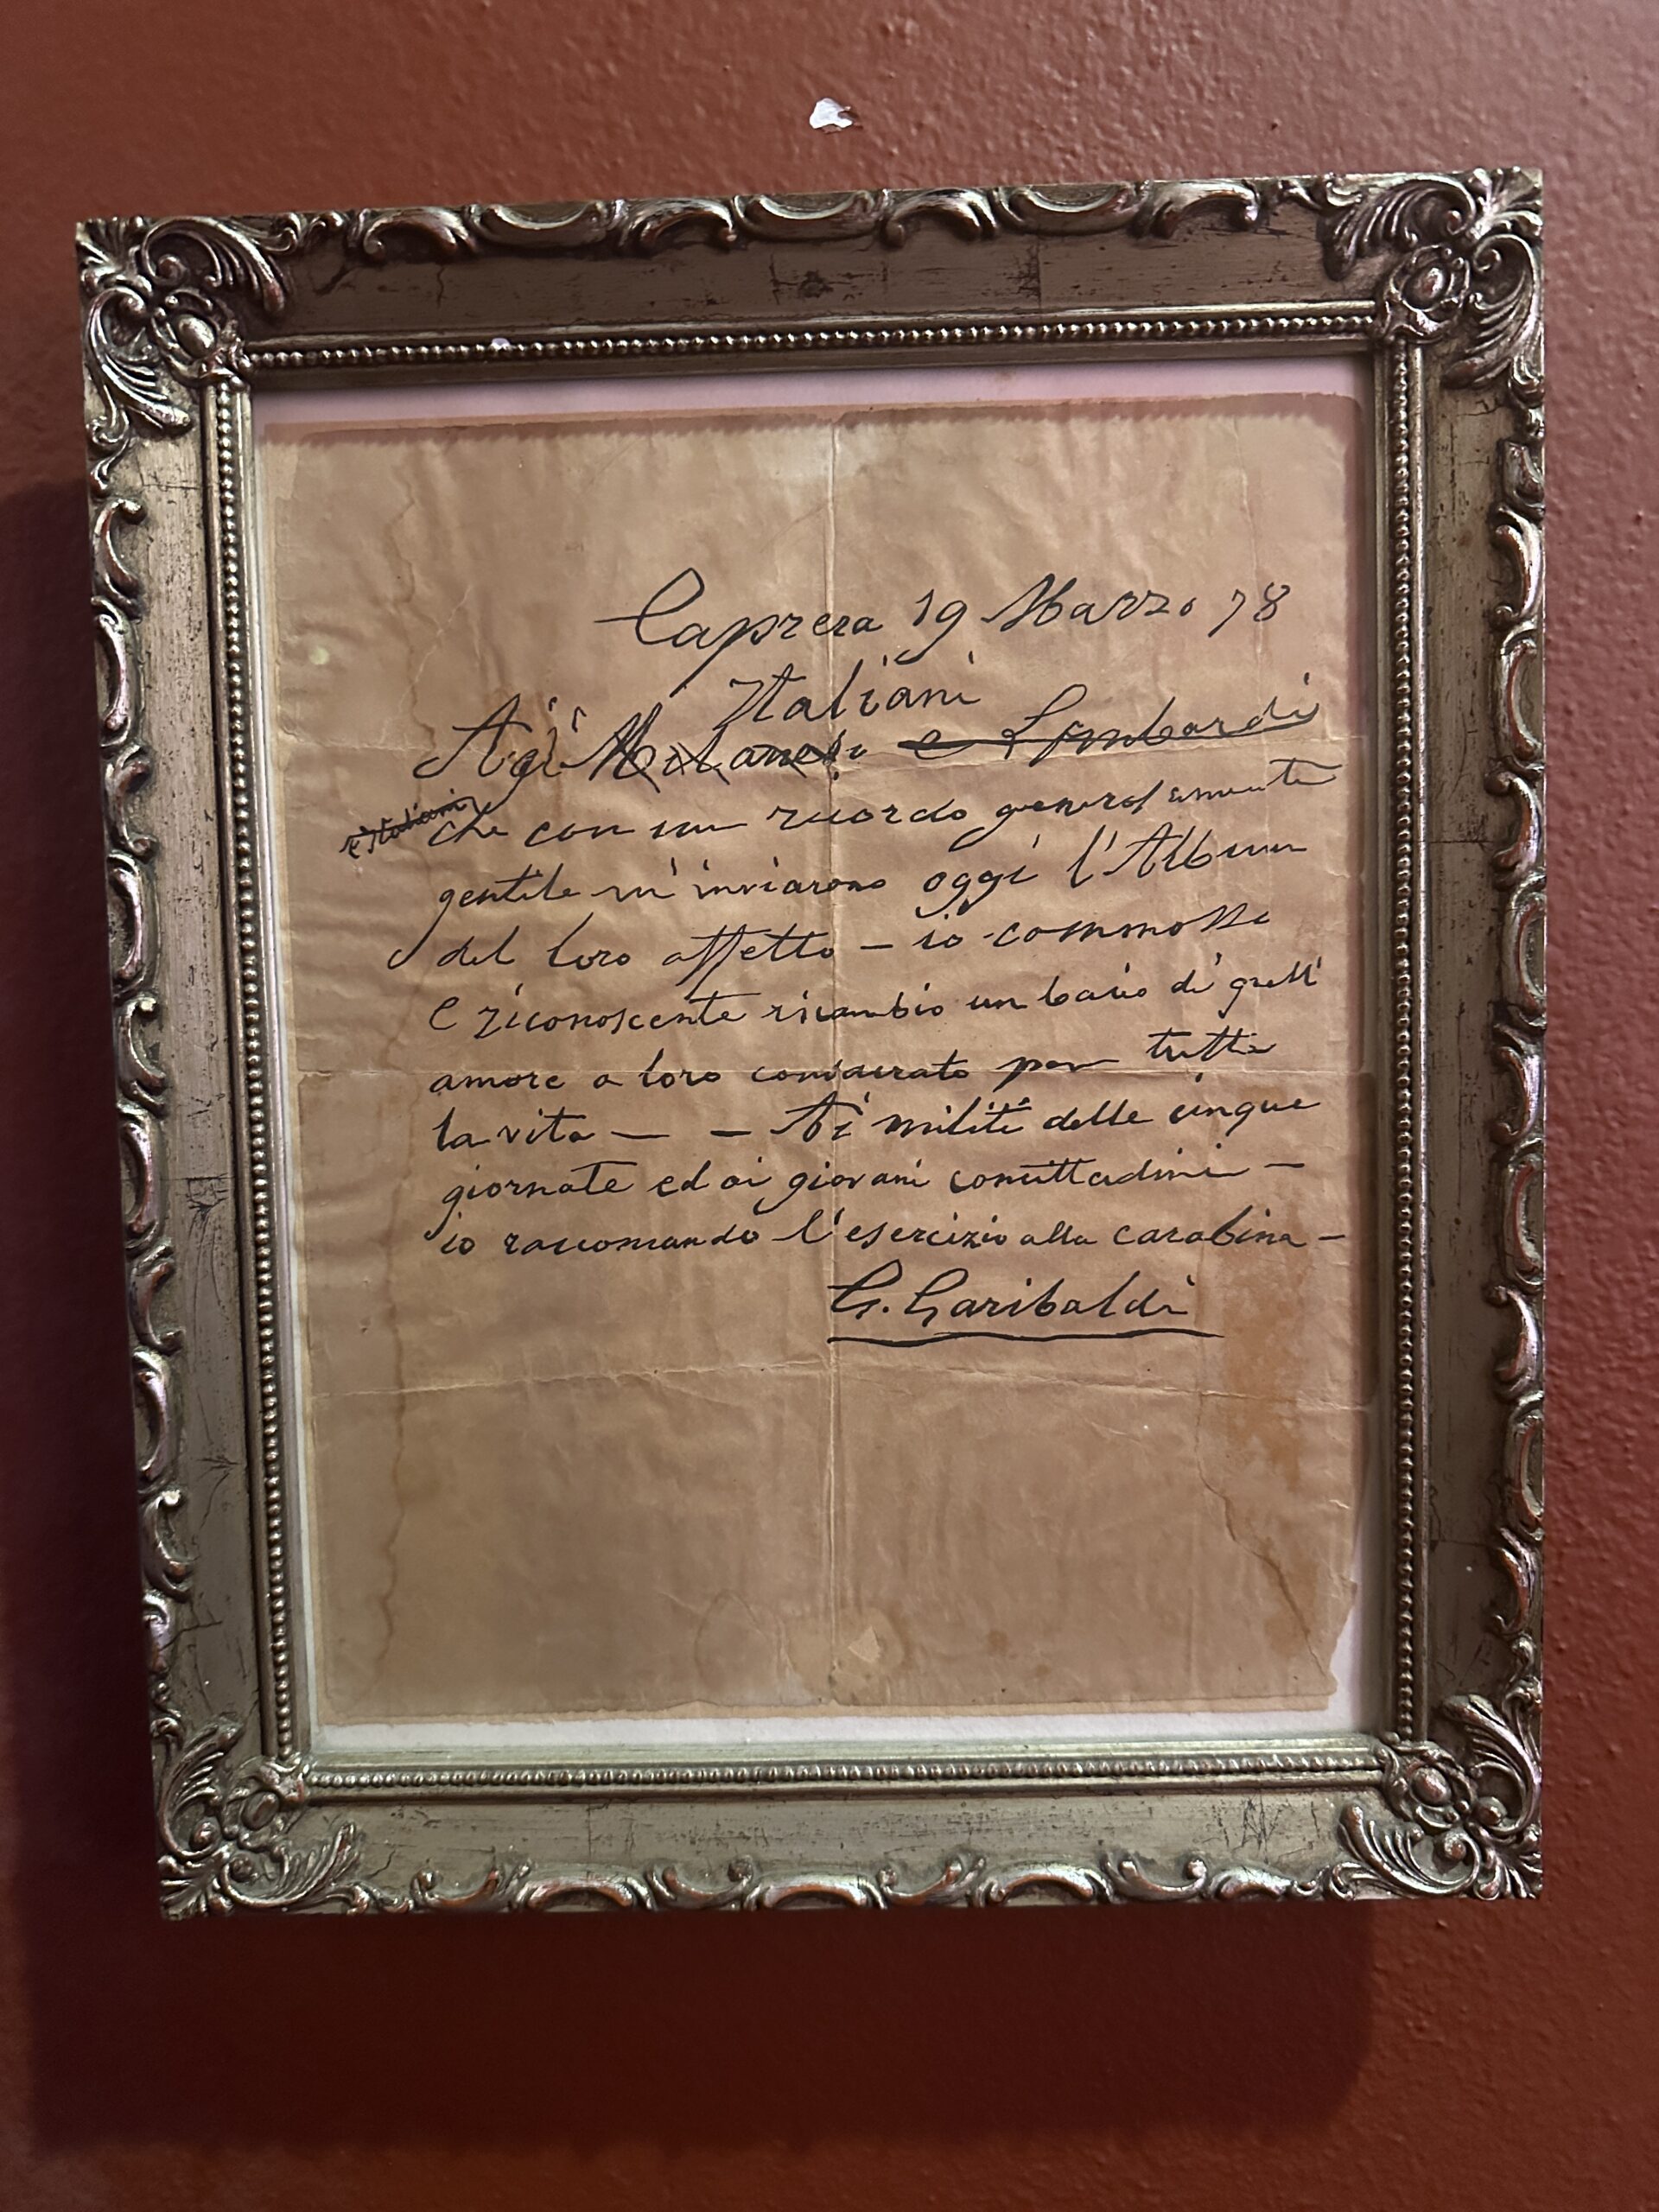 Caprera 19 Marzo 78
Italiani
Agl' Milanesi e Lombardi
e Italiani
che con un ricordo generosamente
gentile m'inviarono oggi l'Album
del loro affetto – io commosso
e riconoscente ricambio un bacio di quell'
amore a loro consacrato per tutta
la vita — – Ai militi delle cinque
giornate ed ai giovani concittadini –
io raccomando l'esercizio alla carabina –
G. Garibaldi